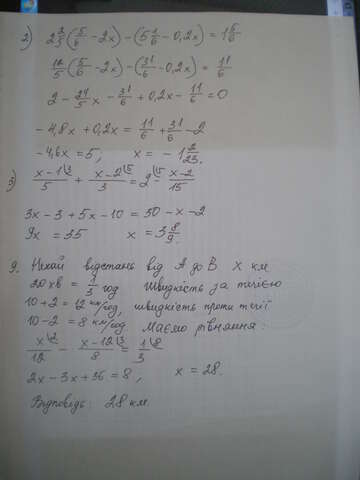 2) 2 2/5 (5/6 - 2x) - (5 1/6 - 0,2x) = 1 5/6
12/5 (5/6 - 2x) - (31/6 - 0,2x) = 11/6
2 - 24/5 x - 31/6 + 0,2x - 11/6 = 0
-4,8x + 0,2x = 11/6 + 31/6 - 2
-4,6x = 5, x = -1 2/23.
3) x-1\3 / 5 + x-2\5 / 3 = 2\15 - x-2 / 15
3x - 3 + 5x - 10 = 30 - x - 2
9x = 35 x = 3 8/9.
9. Нехай відстань від А до В х км
20 хв = 1/3 год швидкість за течією
10+2 = 12 км/год, швидкість проти течії
10-2 = 8 км/год. Маємо рівняння:
x\2 / 12 - x-12\3 / 8 = 1\8 / 3
2x - 3x + 36 = 8, x = 28.
Відповідь: 28 км